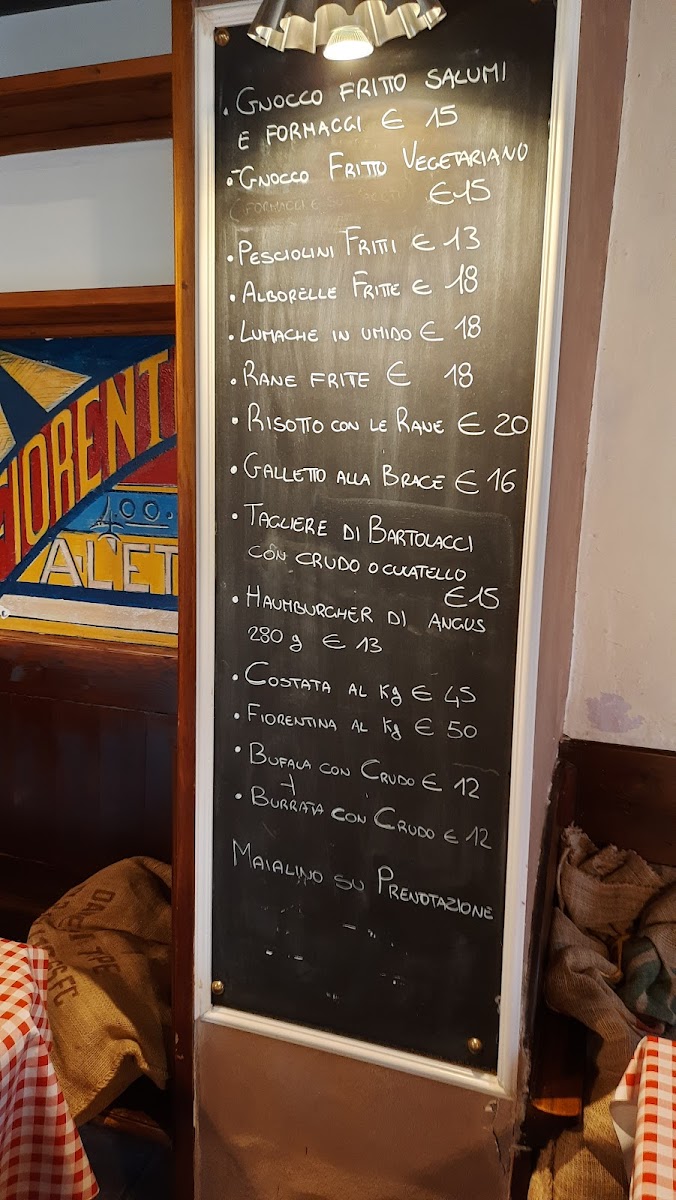 • GNOCCO FRITTO SALUMI
E FORMAGGI € 15
• GNOCCO FRITTO VEGETARIANO
(FORMAGGI E
€15
• PESCIOLINI FRITTI € 13
• ALBORELLE FRITTE € 18
• LUMACHE IN UMIDO € 18
• RANE FRITE € 18
• RISOTTO CON LE RANE € 20
• GALLETTO ALLA BRACE € 16
• TAGLIERE DI BARTOLACCI
CON CRUDO O CULATELLO
€15
• HAUMBURGHER DI ANGUS
280 g € 13
• COSTATA AL Kg € 45
• FIORENTINA AL Kg € 50
• BUFALA CON CRUDO € 12
• BURRATA CON CRUDO € 12
MAIALINO SU PRENOTAZIONE
FIORENTI
AL ET